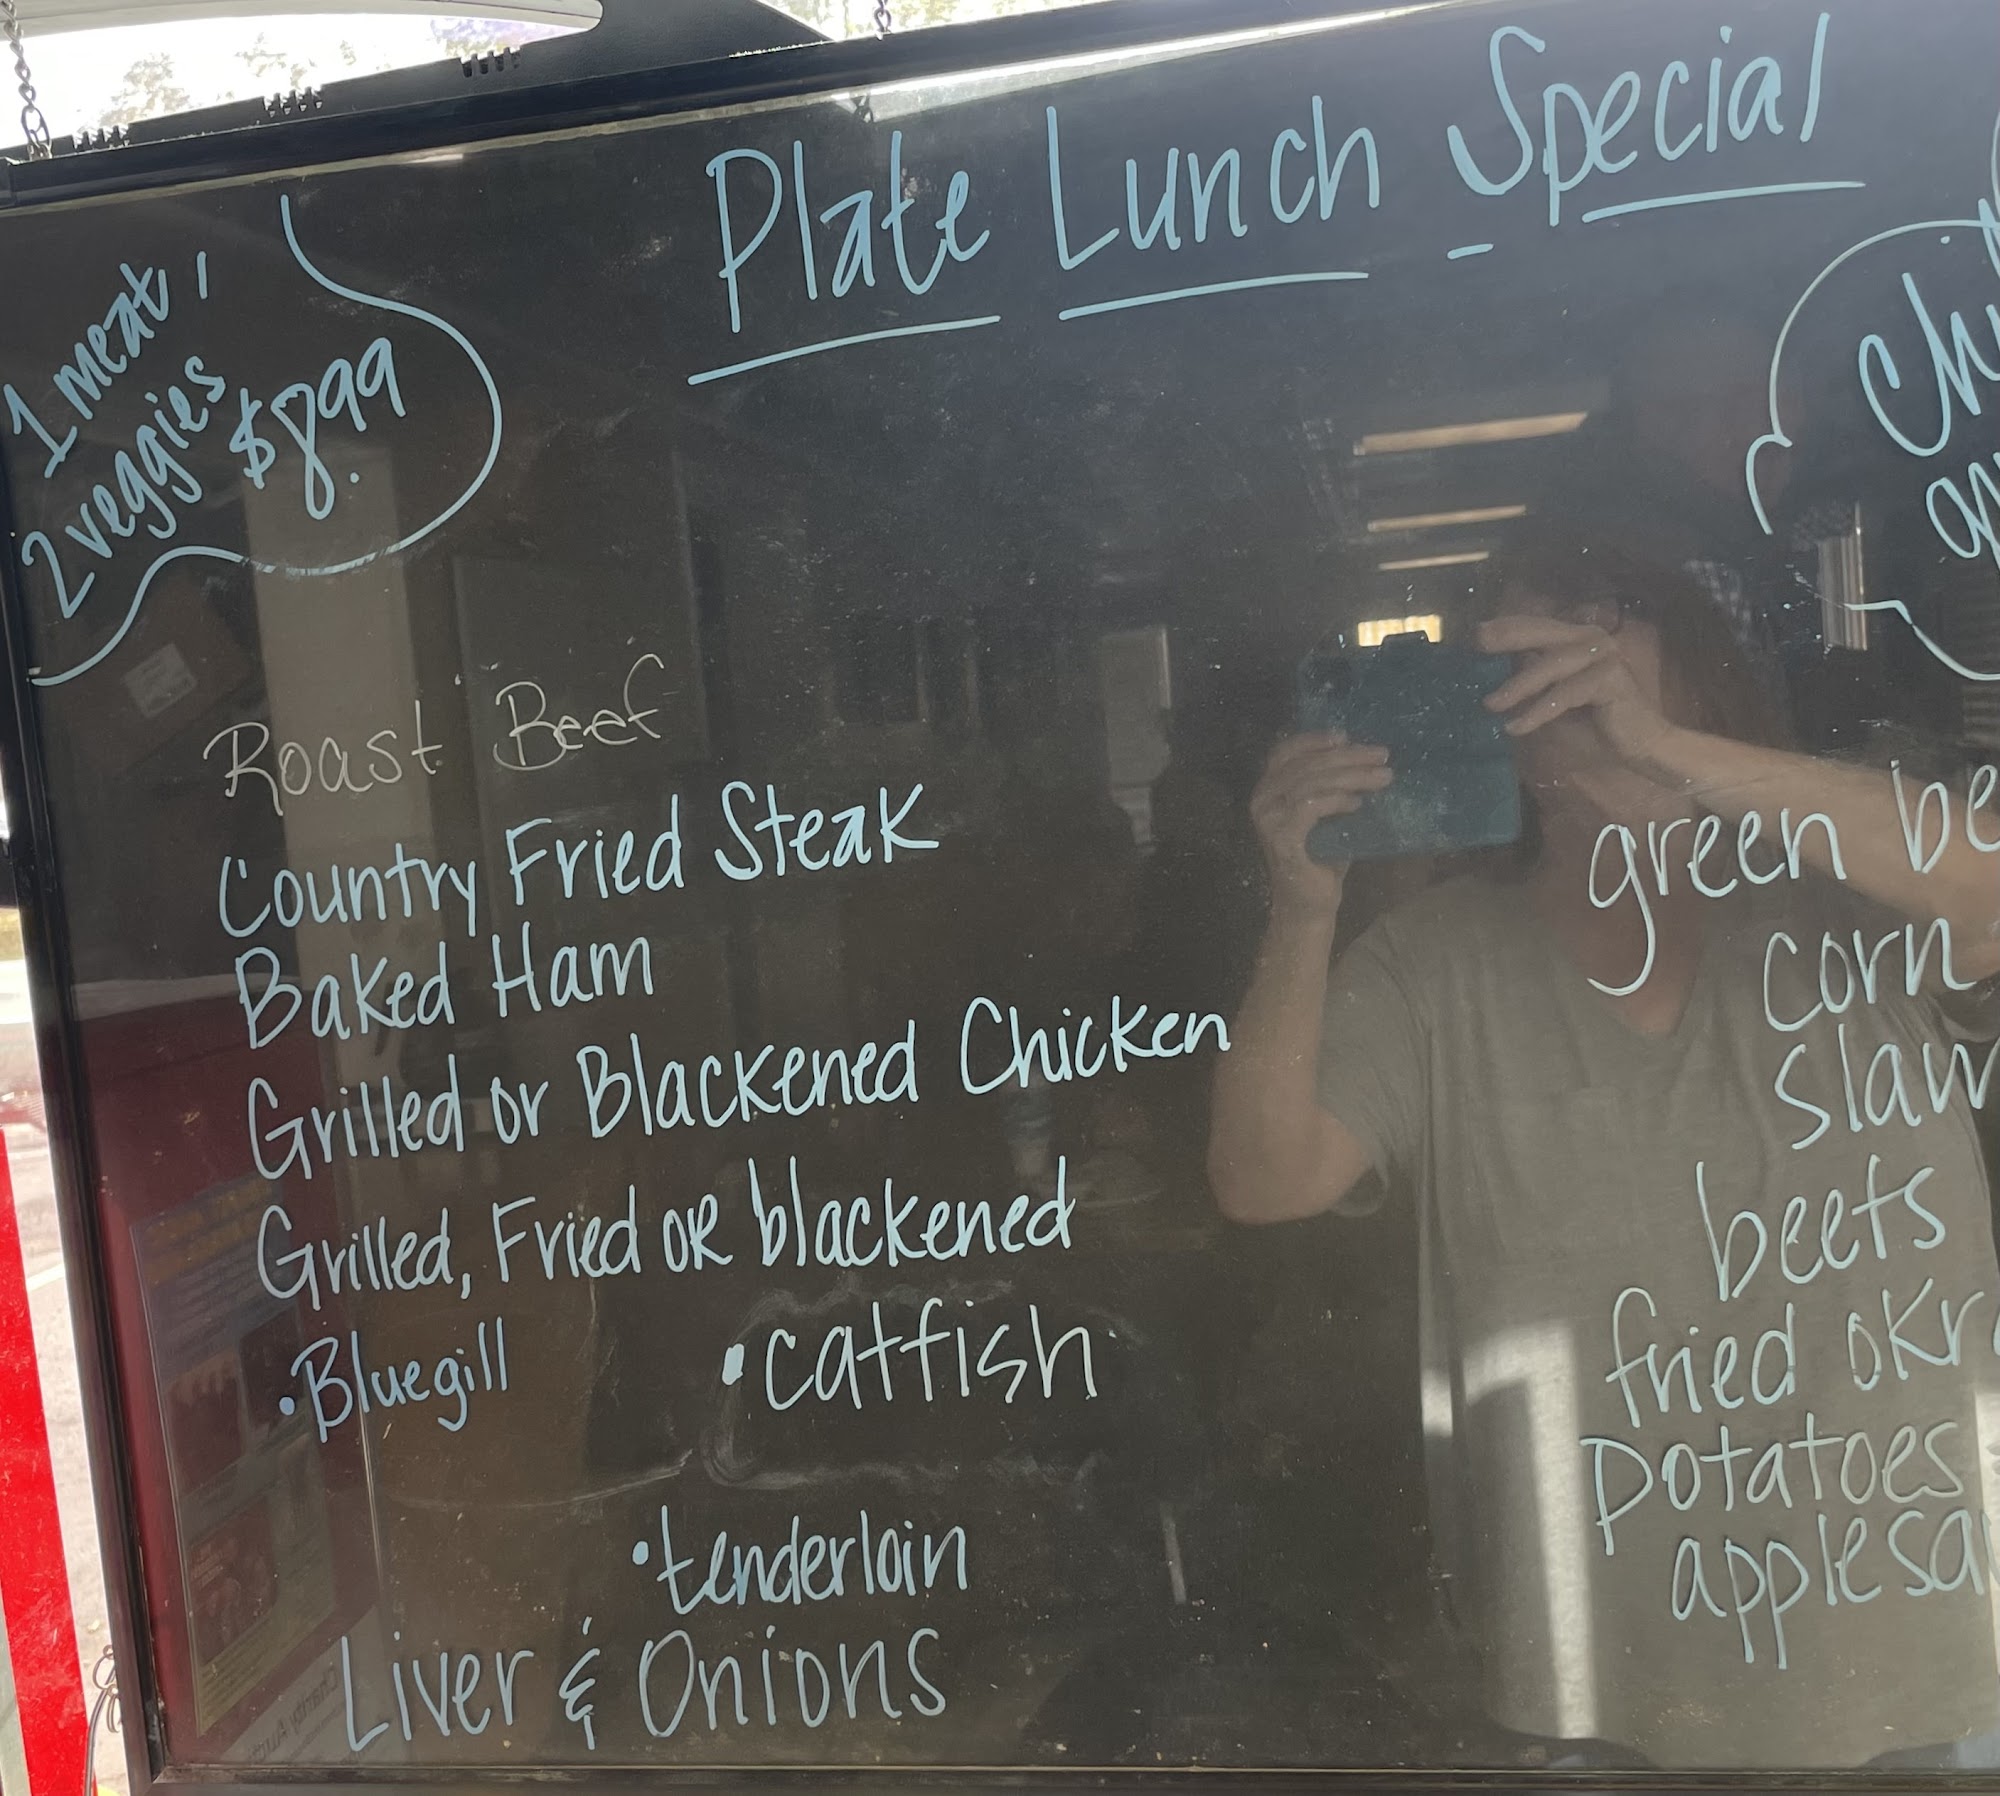 Plate Lunch Special
1 meat,
2 veggies
$8.99
Roast Beef
Country Fried Steak
Baked Ham
Grilled or Blackened Chicken
Grilled, Fried OR blackened
• Bluegill • catfish
• tenderloin
Liver & Onions
green be
corn
slaw
beets
fried okra
potatoes
applesa